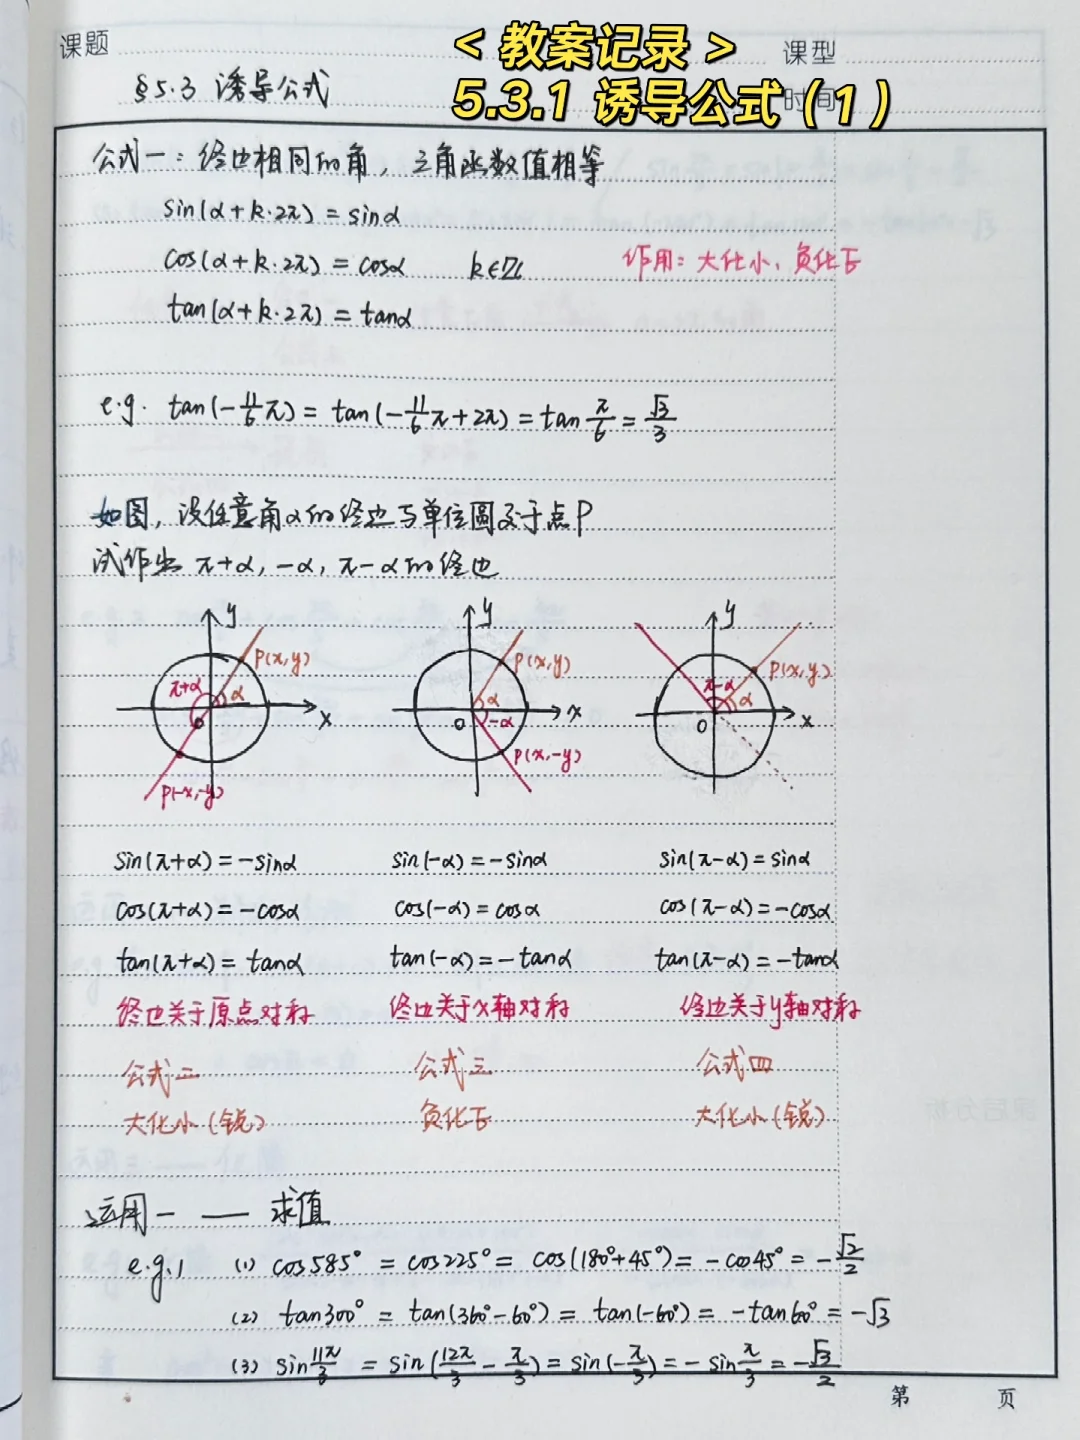 课题
<教案记录>
课型
§5.3 诱导公式
5.3.1 诱导公式（1）
时间
公式一：终边相同的角，三角函数值相等
sin(α+k·2π)=sinα
cos(α+k·2π)=cosα k∈Z 作用：大化小、负化正
tan(α+k·2π)=tanα
e.g. tan(-11/6π)=tan(-11/6π+2π)=tanπ/6=√3/3
如图，设任意角α的终边与单位圆交于点P
试作出 π+α，-α，π-α的终边
y y y
P(x,y) P(x,y) P(x,y)
π+α α α π-α α
O x O -α x O x
P(-x,-y) P(x,-y)
sin(π+α)=-sinα sin(-α)=-sinα sin(π-α)=sinα
cos(π+α)=-cosα cos(-α)=cosα cos(π-α)=-cosα
tan(π+α)=tanα tan(-α)=-tanα tan(π-α)=-tanα
终边关于原点对称 终边关于x轴对称 终边关于y轴对称
公式二 公式三 公式四
大化小(锐) 负化正 大化小(锐)
运用一 —— 求值
e.g.1 (1) cos585°=cos225°=cos(180°+45°)=-cos45°=-√2/2
(2) tan300°=tan(360°-60°)=tan(-60°)=-tan60°=-√3
(3) sin11π/3=sin(12π/3-π/3)=sin(-π/3)=-sinπ/3=-√3/2
第 页